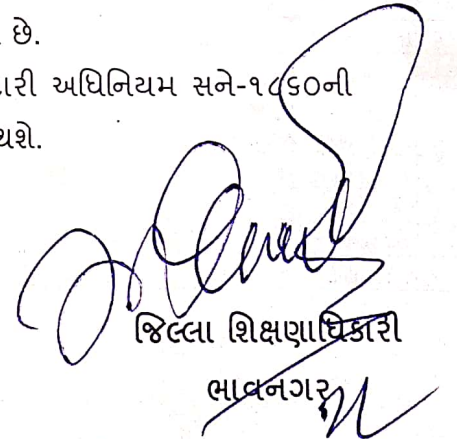 છે.
અધિનિયમ સને-૧૮૬૦ની
થશે.
જિલ્લા શિક્ષણાધિકારી
ભાવનગર